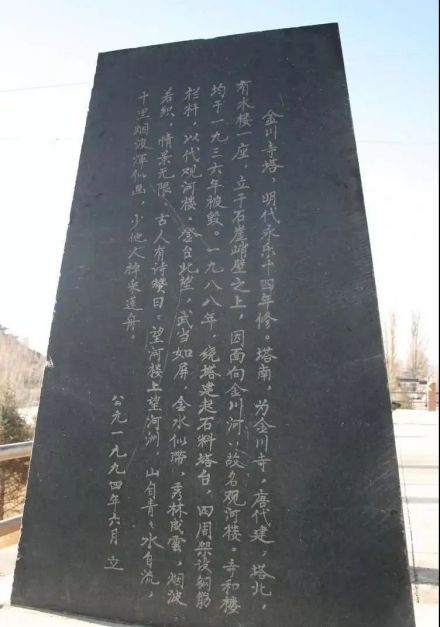 金川寺塔，明代永乐十四年修。塔南，为金川寺，唐代建，塔北，
有木楼一座，立于石崖峭壁之上，因面向金川河，故名观河楼。寺和楼
均于一九三六年被毁。一九八八年，绕塔建起石料塔台，四周架设钢筋
栏杆，以代观河楼。登台北望，武当如屏，金水似带，秀林成雲，烟波
若织，情景无限，古人有诗赞曰：望河楼上望河洲，山自青々水自流，
十里烟波浑似画，少他大棹采莲舟。
公元一九九四年六月 立